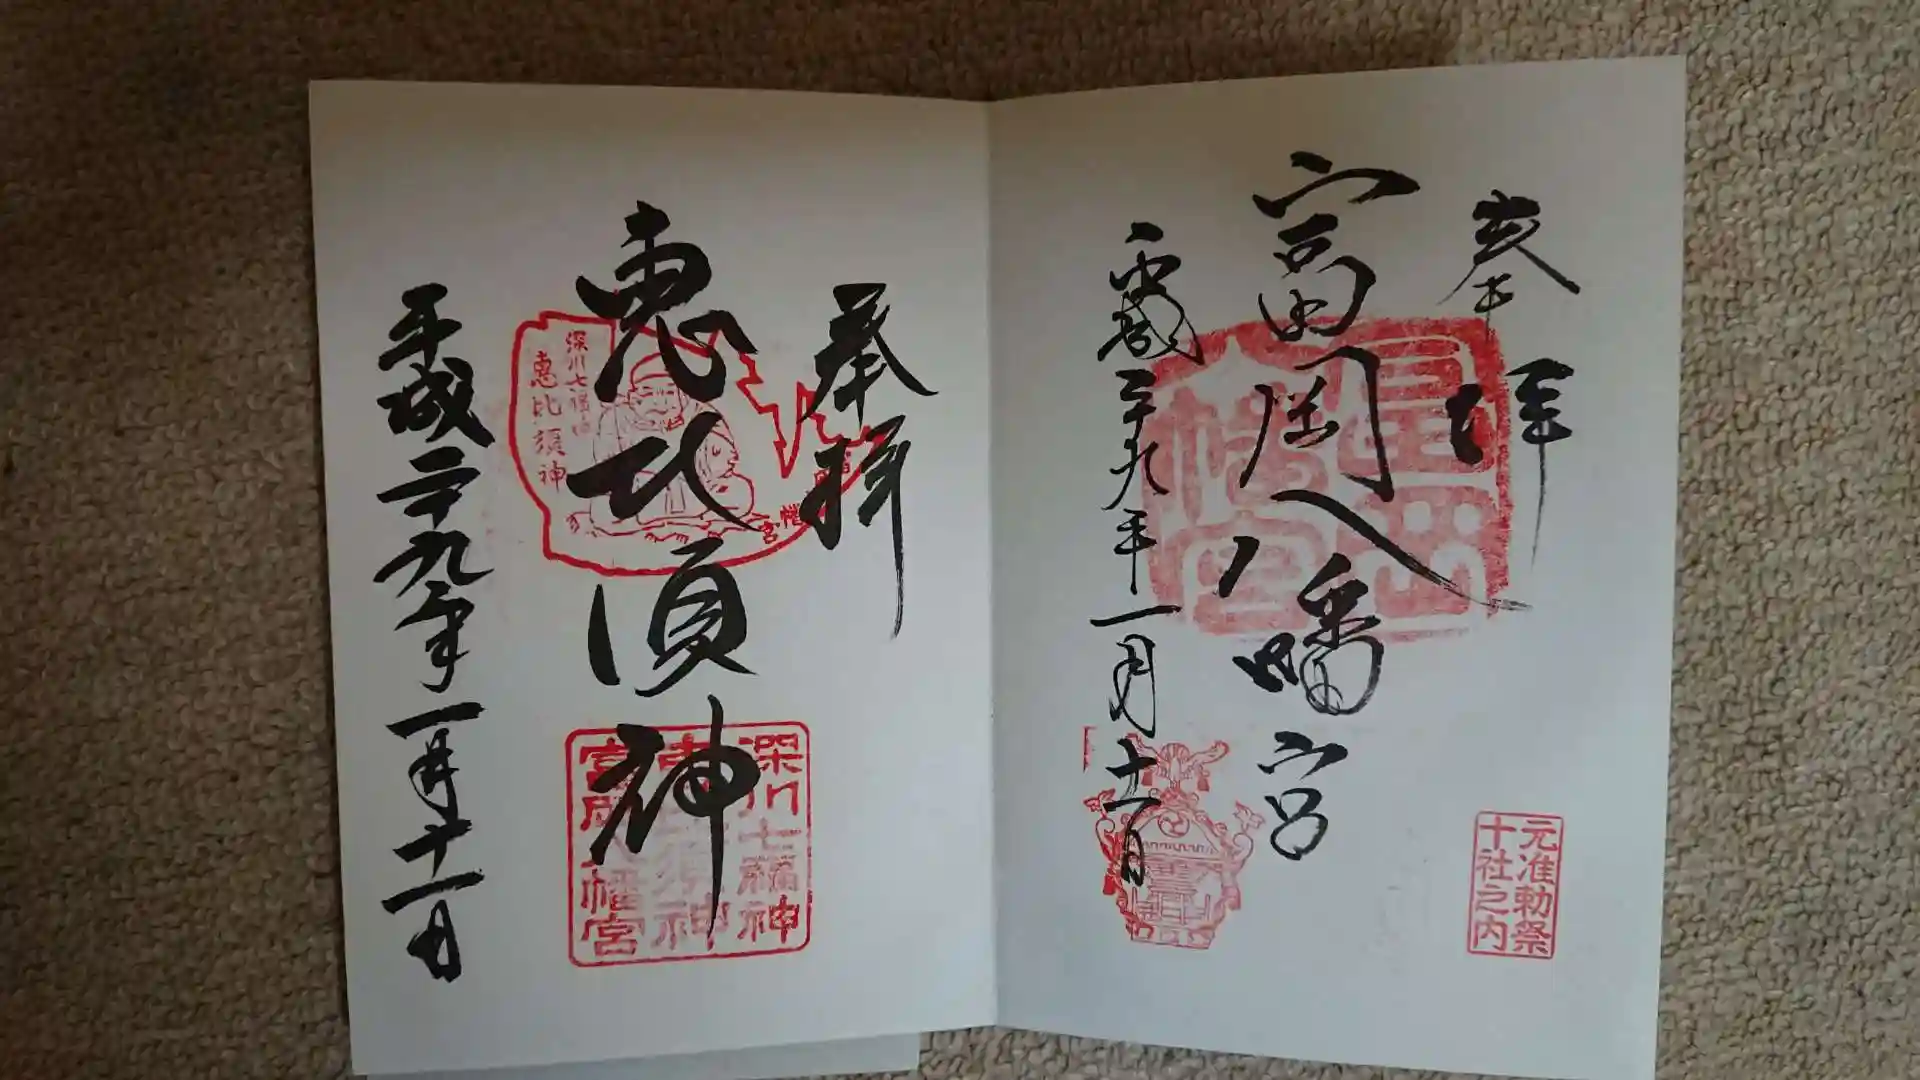 奉拝
富岡八幡宮
平成二十九年一月十一日
富岡
八幡宮
元准勅祭
十社之内
奉拝
恵比須神
平成二十九年一月十一日
深川七福神
恵比須神
深川七福神
恵比須神
富岡八幡宮